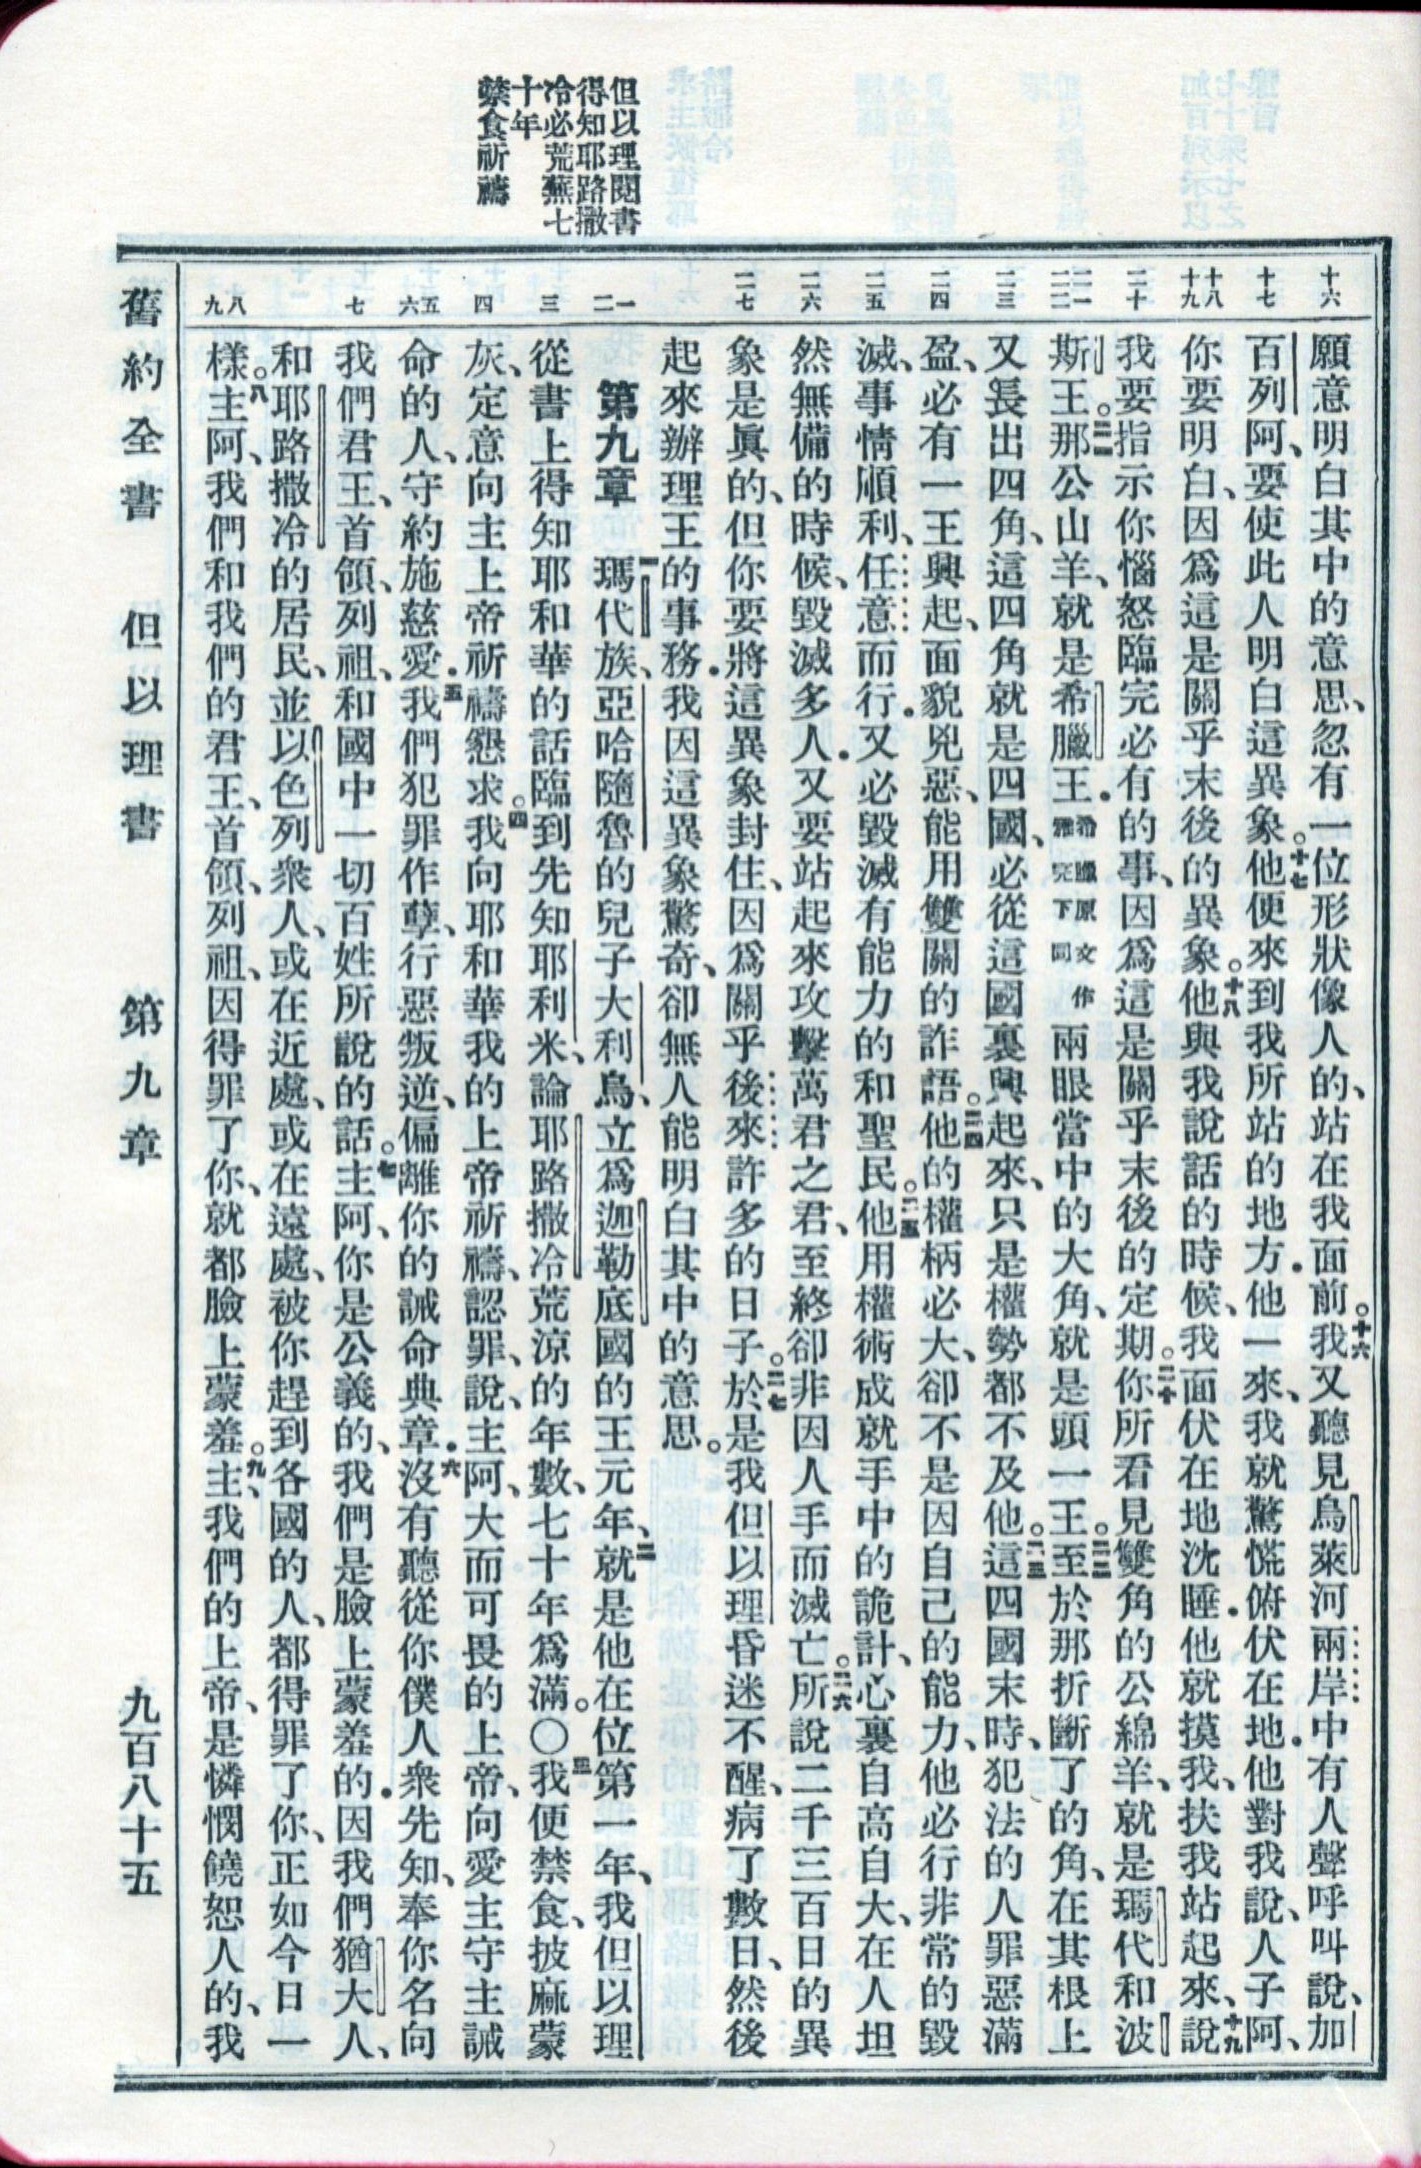 但以理閱書
得知耶路撒
冷必荒蕪七
十年
禁食祈禱
十六
十七
十八
十九
二十
二一
二二
二三
二四
二五
二六
二七
一
二
三
四
五
六
七
八
九
願意明白其中的意思、忽有一位形狀像人的、站在我面前。十六我又聽見烏萊河兩岸中有人聲呼叫說、加
百列阿、要使此人明白這異象。十七他便來到我所站的地方．他一來、我就驚慌俯伏在地．他對我說、人子阿、
你要明白、因爲這是關乎末後的異象。十八他與我說話的時候、我面伏在地沈睡．他就摸我、扶我站起來、十九說
我要指示你惱怒臨完必有的事、因爲這是關乎末後的定期。二十你所看見雙角的公綿羊、就是瑪代和波
斯王。二一那公山羊、就是希臘王．希臘原文作雅完下同兩眼當中的大角、就是頭一王。二二至於那折斷了的角、在其根上
又長出四角、這四角就是四國、必從這國裏興起來、只是權勢都不及他。二三這四國末時、犯法的人罪惡滿
盈、必有一王興起、面貌兇惡、能用雙關的詐語。二四他的權柄必大、卻不是因自己的能力、他必行非常的毀
滅、事情順利、任意而行．又必毀滅有能力的和聖民。二五他用權術成就手中的詭計、心裏自高自大、在人坦
然無備的時候、毀滅多人．又要站起來攻擊萬君之君、至終卻非因人手而滅亡。二六所說二千三百日的異
象是眞的、但你要將這異象封住、因爲關乎後來許多的日子。二七於是我但以理昏迷不醒、病了數日、然後
起來辦理王的事務．我因這異象驚奇、卻無人能明白其中的意思。
第九章　一瑪代族、亞哈隨魯的兒子大利烏、立爲迦勒底國的王元年、二就是他在位第一年、我但以理
從書上得知耶和華的話臨到先知耶利米、論耶路撒冷荒涼的年數、七十年爲滿。〇三我便禁食、披麻蒙
灰、定意向主上帝祈禱懇求。四我向耶和華我的上帝祈禱、認罪、說、主阿、大而可畏的上帝、向愛主守主誡
命的人、守約施慈愛．五我們犯罪作孽、行惡叛逆、偏離你的誡命典章．六沒有聽從你僕人衆先知、奉你名向
我們君王、首領、列祖、和國中一切百姓所說的話。七主阿、你是公義的、我們是臉上蒙羞的．因我們猶大人、
和耶路撒冷的居民、並以色列衆人、或在近處、或在遠處、被你趕到各國的人、都得罪了你、正如今日一
樣。八主阿、我們和我們的君王、首領、列祖、因得罪了你、就都臉上蒙羞。九主、我們的上帝、是憐憫饒恕人的、我
舊約全書　但以理書　第九章　九百八十五